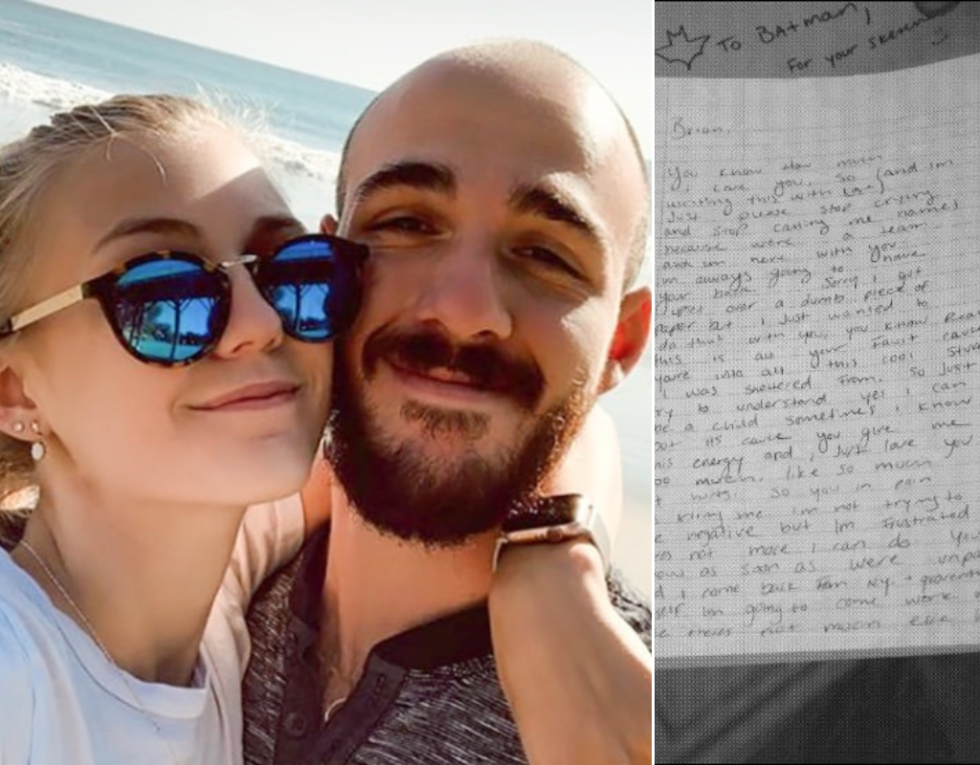 To BAtman,
For your sketch
Brian,
You know how much
I love you, so (and im
writing this with love)
Just please stop crying
and stop calling me names
because we're a team
and im here with you.
im always going to have
your back. Sorry I got
upset over a dumb piece of
paper but I just wanted to
do that with you, you know
this is all your fault cause
youre into all this cool
I was sheltered from. So just
ry to understand yes I can
be a child sometimes I know
but its cause you give me
his energy and I just love you
oo much. like so much
t hurts. So you in pain
killing me im not trying to
e negative but Im frustrated
es not more I can do. You
ow as soon as were unp
d I come back from N.Y. +
self im going to come work
e theres not much else